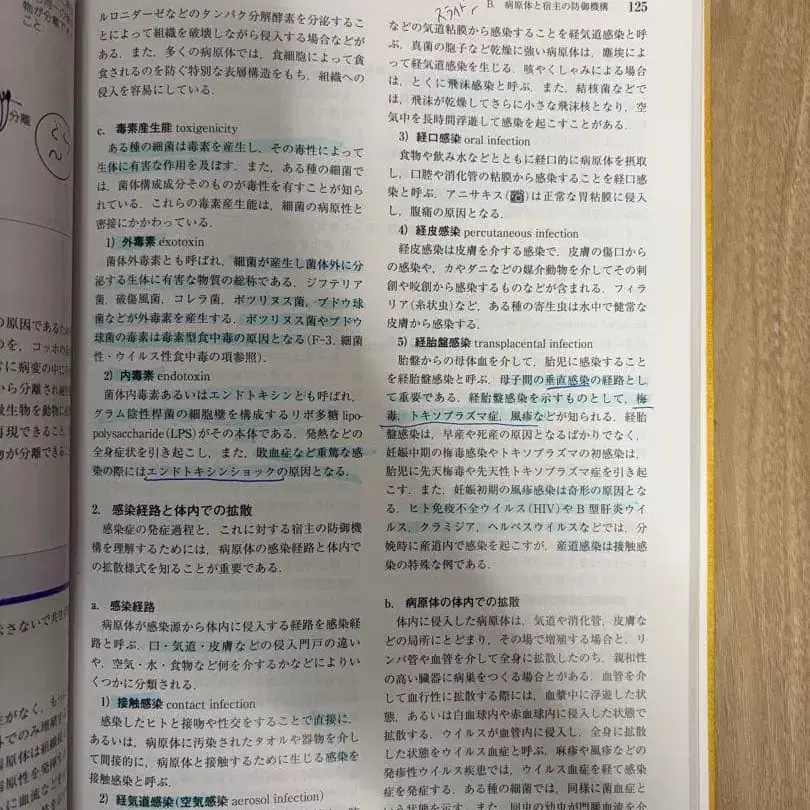 B. 病原体と宿主の防御機構 125
ルロニダーゼなどのタンパク分解酵素を分泌するこ
とによって組織を破壊しながら侵入する場合などが
ある．また，多くの病原体では，食細胞によって貪
食されるのを防ぐ特別な表層構造をもち，組織への
侵入を容易にしている．
c. 毒素産生能 toxigenicity
ある種の細菌は毒素を産生し，その毒性によって
生体に有害な作用を及ぼす．また，ある種の細菌で
は，菌体構成成分そのものが毒性を有すことが知ら
れている．これらの毒素産生能は，細菌の病原性と
密接にかかわっている．
1) 外毒素 exotoxin
菌体外毒素とも呼ばれ，細菌が産生し菌体外に分
泌する生体に有害な物質の総称である．ジフテリア
菌，破傷風菌，コレラ菌，ボツリヌス菌，ブドウ球
菌などが外毒素を産生する．ボツリヌス菌やブドウ
球菌の毒素は毒素型食中毒の原因となる(F-3. 細菌
性・ウイルス性食中毒の項参照)．
2) 内毒素 endotoxin
菌体内毒素あるいはエンドトキシンとも呼ばれ，
グラム陰性桿菌の細胞壁を構成するリポ多糖 lipo-
polysaccharide(LPS)がその本体である．発熱などの
全身症状を引き起こし，また，敗血症など重篤な感
染の際にはエンドトキシンショックの原因となる．
2. 感染経路と体内での拡散
感染症の発症過程と，これに対する宿主の防御機
構を理解するためには，病原体の感染経路と体内で
の拡散様式を知ることが重要である．
a. 感染経路
病原体が感染源から体内に侵入する経路を感染経
路と呼ぶ．口・気道・皮膚などの侵入門戸の違い
や，空気・水・食物など何を介するかなどによりい
くつかに分類される．
1) 接触感染 contact infection
感染したヒトと接吻や性交をすることで直接に，
あるいは，病原体に汚染されたタオルや器物を介し
て間接的に，病原体と接触するために生じる感染を
接触感染と呼ぶ．
2) 経気道感染(空気感染 aerosol infection)
などの気道粘膜から感染することを経気道感染と呼
ぶ．真菌の胞子など乾燥に強い病原体は，塵埃によ
って経気道感染を生じる．咳やくしゃみによる場合
は，とくに飛沫感染と呼ぶ．また，結核菌などで
は，飛沫が乾燥してさらに小さな飛沫核となり，空
気中を長時間浮遊して感染を起こすことがある．
3) 経口感染 oral infection
食物や飲み水などとともに経口的に病原体を摂取
し，口腔や消化管の粘膜から感染することを経口感
染と呼ぶ．アニサキス()は正常な胃粘膜に侵入
し，腹痛の原因となる．
4) 経皮感染 percutaneous infection
経皮感染は皮膚を介する感染で，皮膚の傷口から
の感染や，カやダニなどの媒介動物を介してその刺
創や咬創から感染するものなどが含まれる．フィラ
リア(糸状虫)など，ある種の寄生虫は水中で健常な
皮膚から感染する．
5) 経胎盤感染 transplacental infection
胎盤からの母体血を介して，胎児に感染すること
を経胎盤感染と呼ぶ．母子間の垂直感染の経路とし
て重要である．経胎盤感染を示すものとして，梅
毒，トキソプラズマ症，風疹などが知られる．経胎
盤感染は，早産や死産の原因となるばかりでなく，
妊娠中期の梅毒感染やトキソプラズマの初感染は，
胎児に先天梅毒や先天性トキソプラズマ症を引き起
こす．また，妊娠初期の風疹感染は奇形の原因とな
る．ヒト免疫不全ウイルス(HIV)やB型肝炎ウイ
ルス，クラミジア，ヘルペスウイルスなどでは，分
娩時に産道内で感染を起こすが，産道感染は接触感
染の特殊な例である．
b. 病原体の体内での拡散
体内に侵入した病原体は，気道や消化管，皮膚な
どの局所にとどまり，その場で増殖する場合と，リ
ンパ管や血管を介して全身に拡散したのち，親和性
の高い臓器に病巣をつくる場合とがある．血管を介
して血行性に拡散する際には，血漿中に浮遊した状
態，あるいは白血球内や赤血球内に侵入した状態で
拡散する．ウイルスが血管内に侵入し，全身に拡散
した状態をウイルス血症と呼ぶ．麻疹や風疹などの
発疹性ウイルス疾患では，ウイルス血症を経て感染
症を発症する．ある種の細菌では，同様に菌血症と